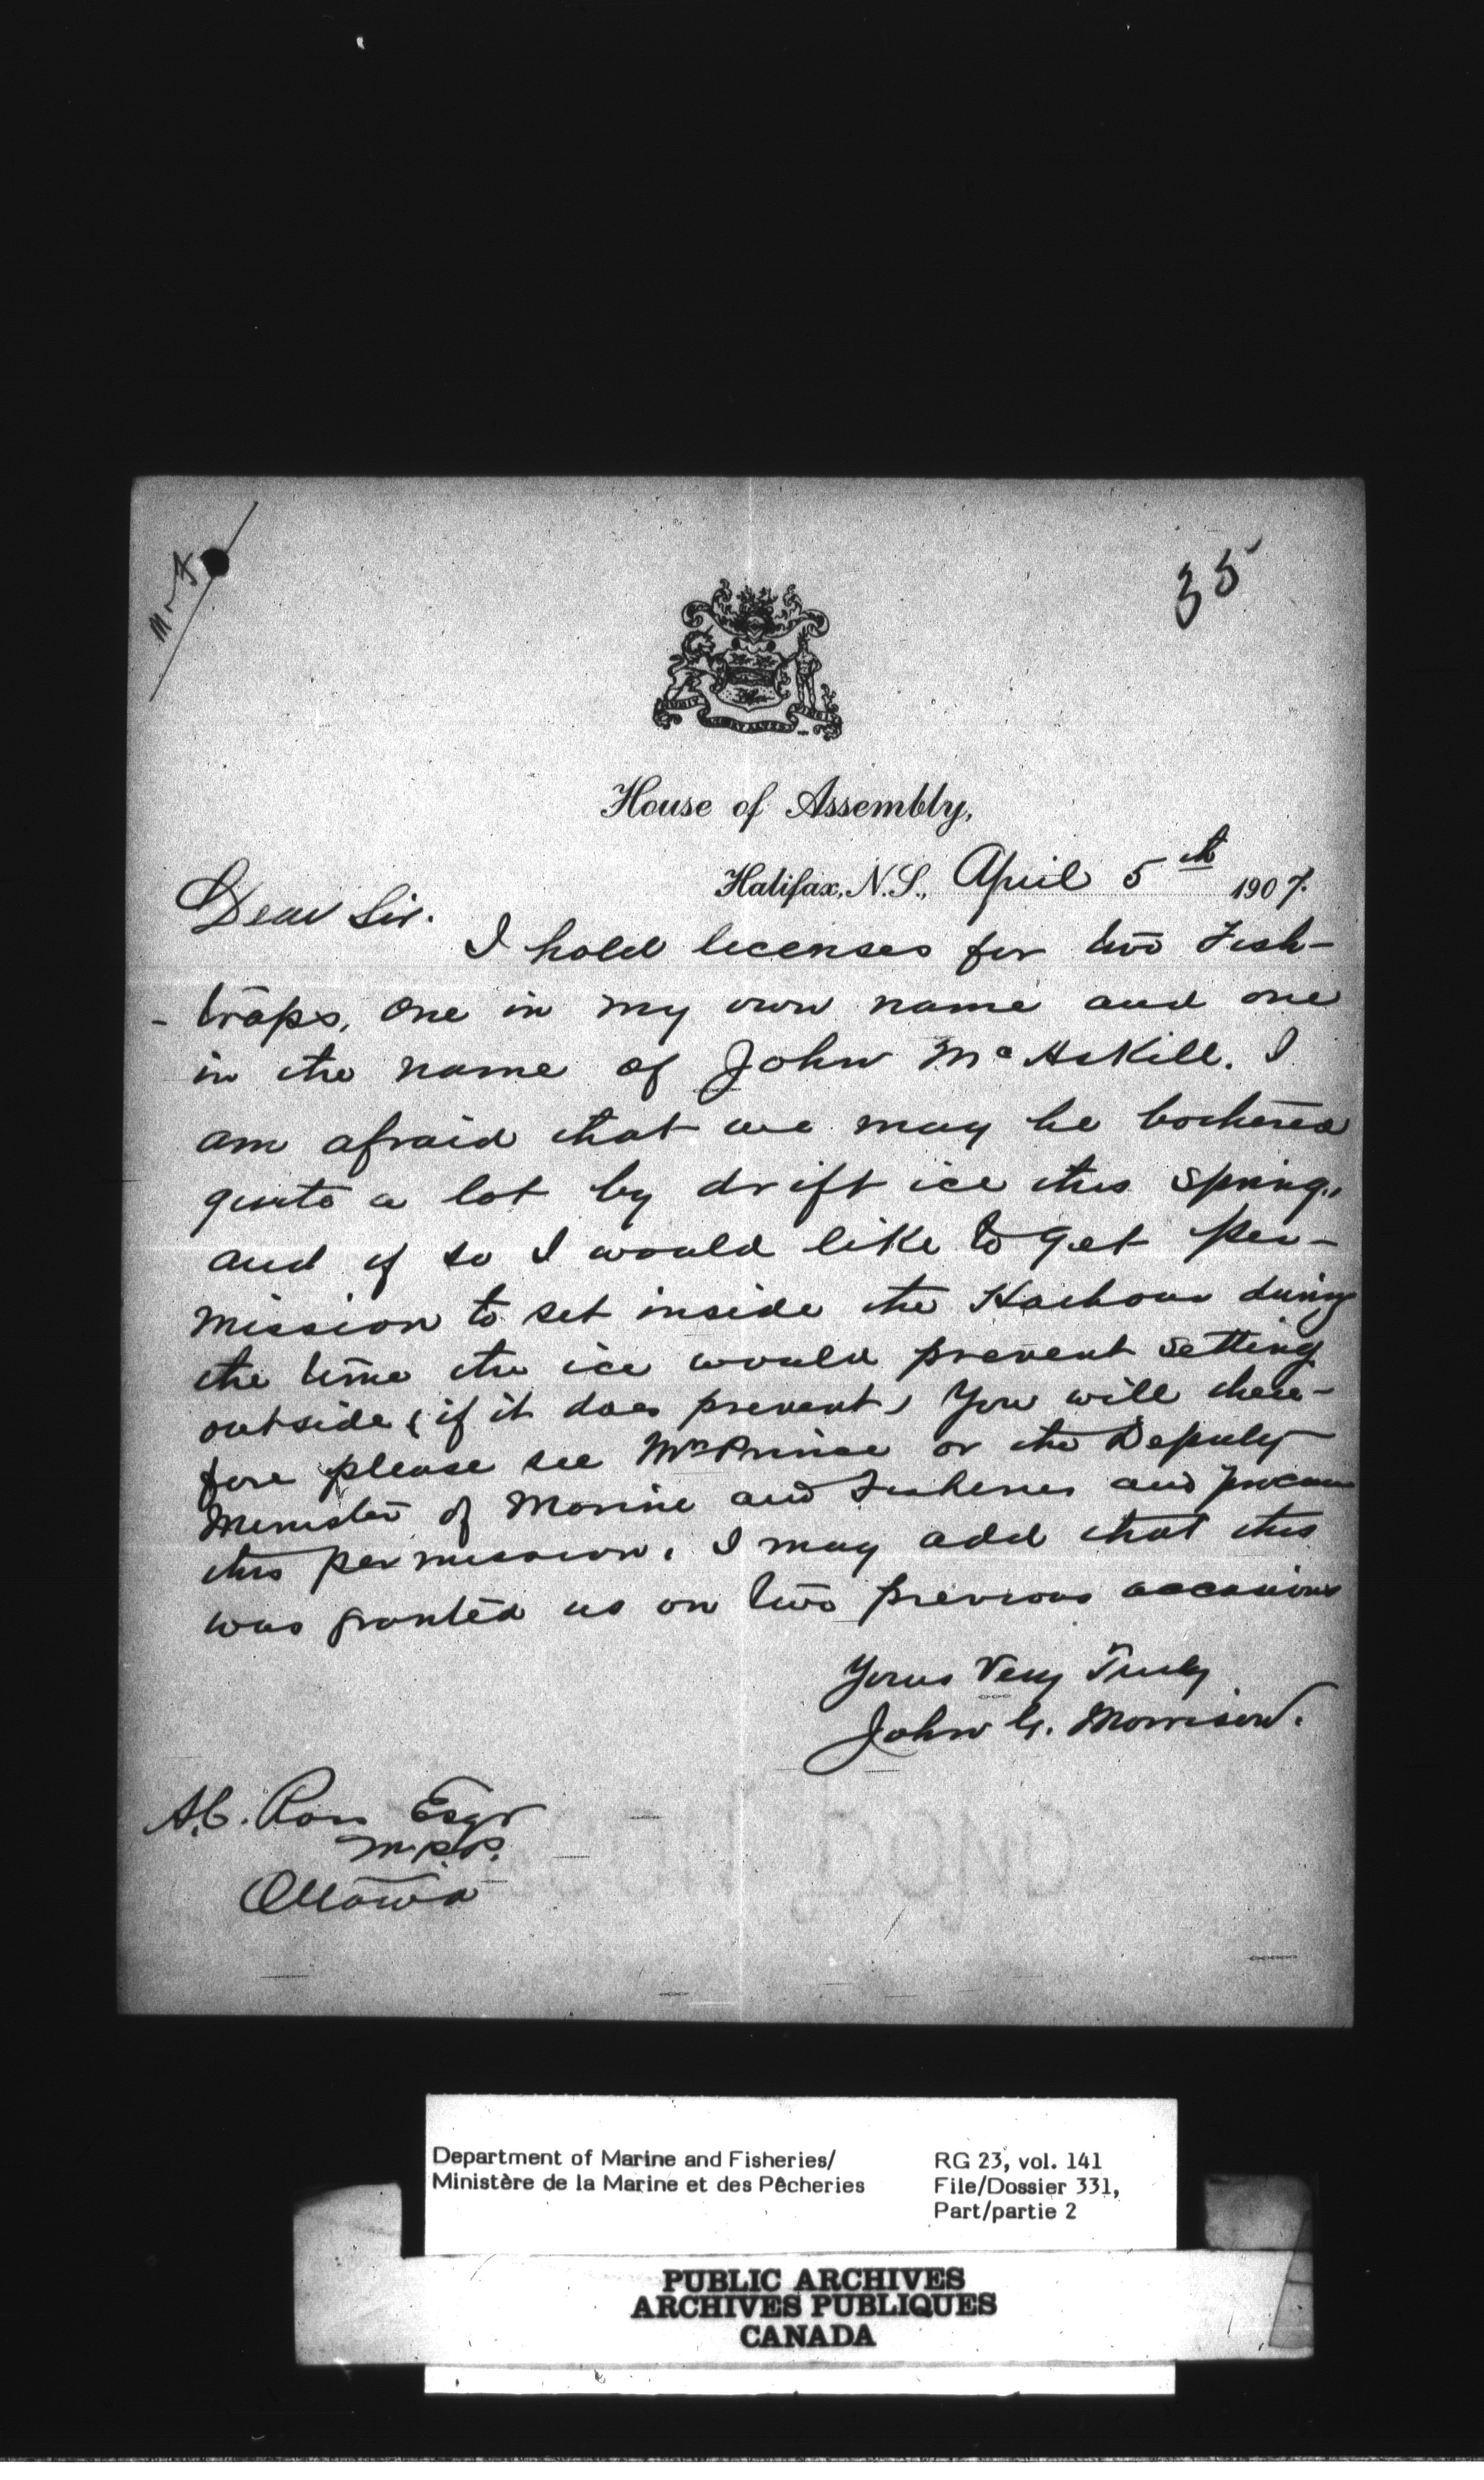 35
House of Assembly,
Halifax, N.S., April 5th 1907.
Dear Sir.
I hold licenses for two Fish-
- traps, One in my own name and one
in the name of John McAskill. I
am afraid that we may be bothered
quite a lot by drift ice this spring,
and if so I would like to get per-
mission to set inside the Harbour during
the time the ice would prevent setting
outside (if it does prevent) You will there-
fore please see Mr Prince or the Deputy
Minister of Marine and Fisheries and procure
this permission. I may add that this
was granted us on two previous occasions
Yours Very Truly
John G. Morrison.
A.C. Ross Esqr
M.P.P.
Ottawa
Department of Marine and Fisheries/
Ministère de la Marine et des Pêcheries
RG 23, vol. 141
File/Dossier 331,
Part/partie 2
PUBLIC ARCHIVES
ARCHIVES PUBLIQUES
CANADA